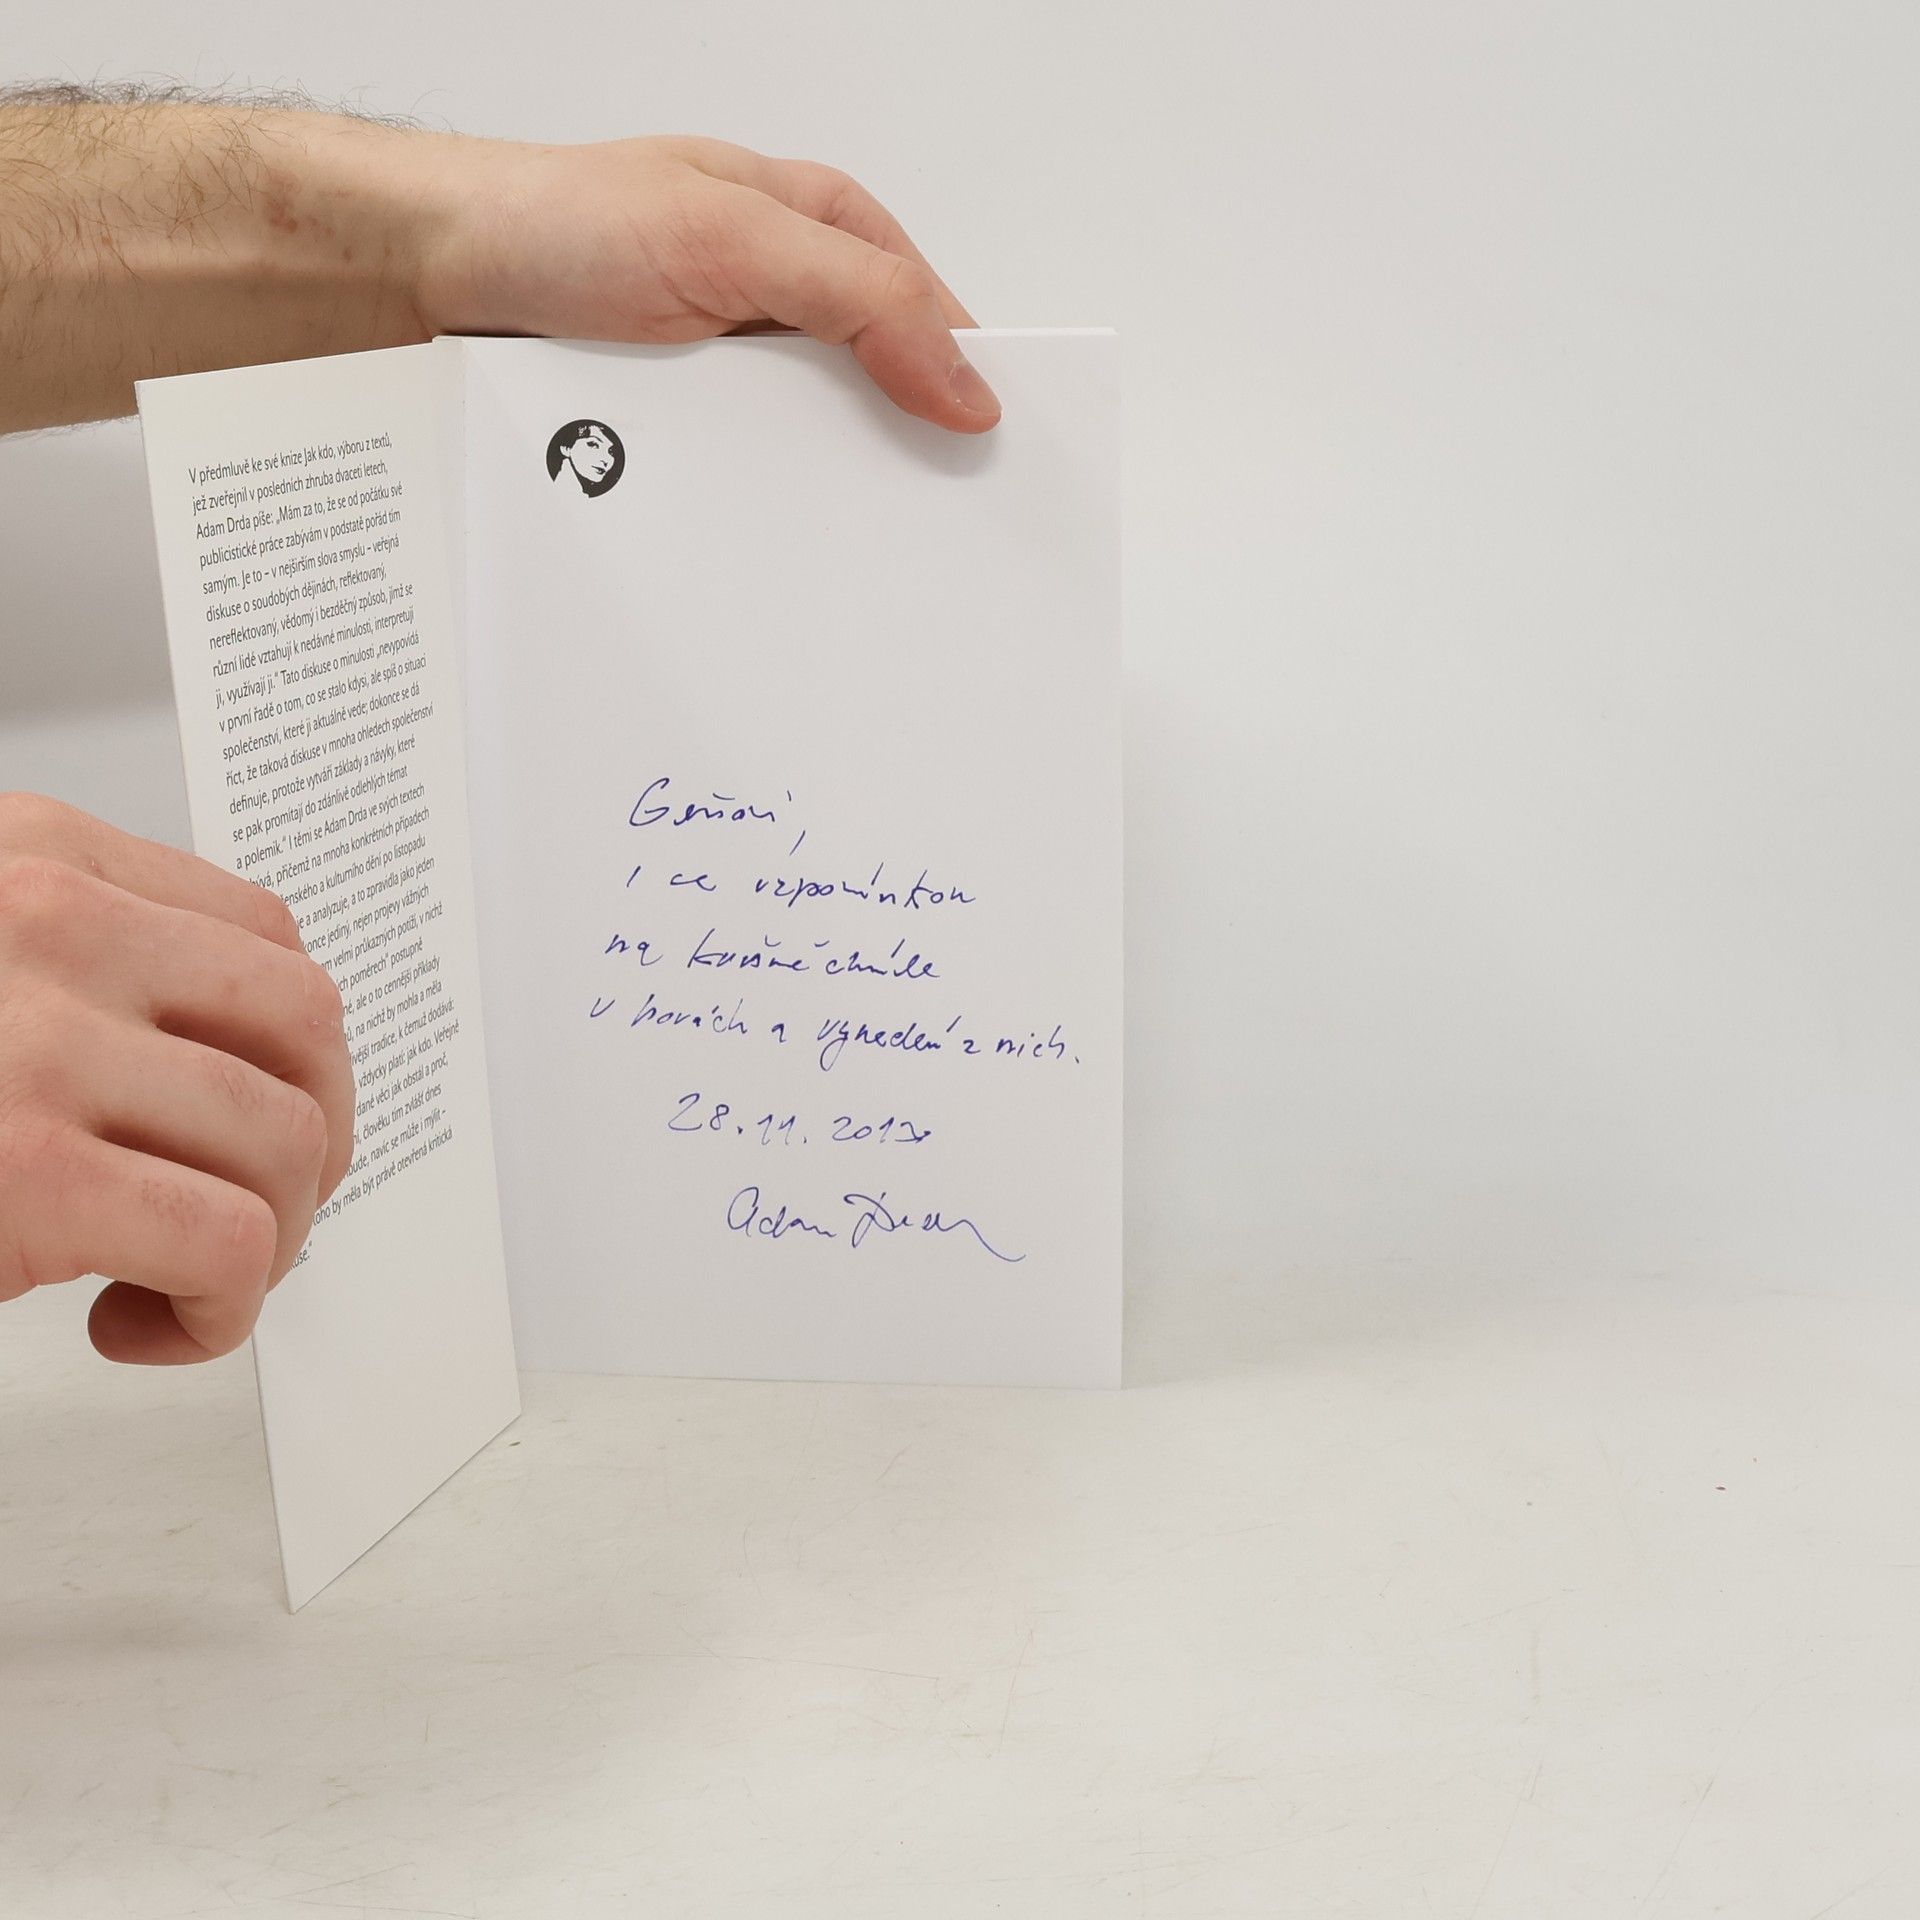 V předmluvě ke své knize Jak kdo, výboru z textů,
jež zveřejnil v posledních zhruba dvaceti letech,
Adam Drda píše: „Mám za to, že se od počátku své
publicistické práce zabývám v podstatě pořád tím
samým. Je to – v nejširším slova smyslu – veřejná
diskuse o soudobých dějinách, reflektovaný,
nereflektovaný, vědomý i bezděčný způsob, jímž se
různí lidé vztahují k nedávné minulosti, interpretují
ji, využívají ji.“ Tato diskuse o minulosti „nevypovídá
v první řadě o tom, co se stalo kdysi, ale spíš o situaci
společenství, které ji aktuálně vede; dokonce se dá
říct, že taková diskuse v mnoha ohledech společenství
definuje, protože vytváří základy a návyky, které
se pak promítají do zdánlivě odlehlých témat
a polemik.“ I těmi se Adam Drda ve svých textech
bývá, přičemž na mnoha konkrétních případech
čenského a kulturního dění po listopadu
je a analyzuje, a to zpravidla jako jeden
konce jediný, nejen projevy vážných
om velmi průkazných potíží, v nichž
ích poměrech“ postupně
né, ale o to cennější příklady
ů, na nichž by mohla a měla
ivější tradice, k čemuž dodává:
, vždycky platí: jak kdo. Veřejně
dané věci jak obstál a proč,
ní, člověku tím zvlášť dnes
bude, navíc se může i mýlit –
toho by měla být právě otevřená kritická
kuse.“
i se vzpomínkou
na krušné chvíle
v horách a vyvedení z nich.
28. 11. 2013
Adam Drda